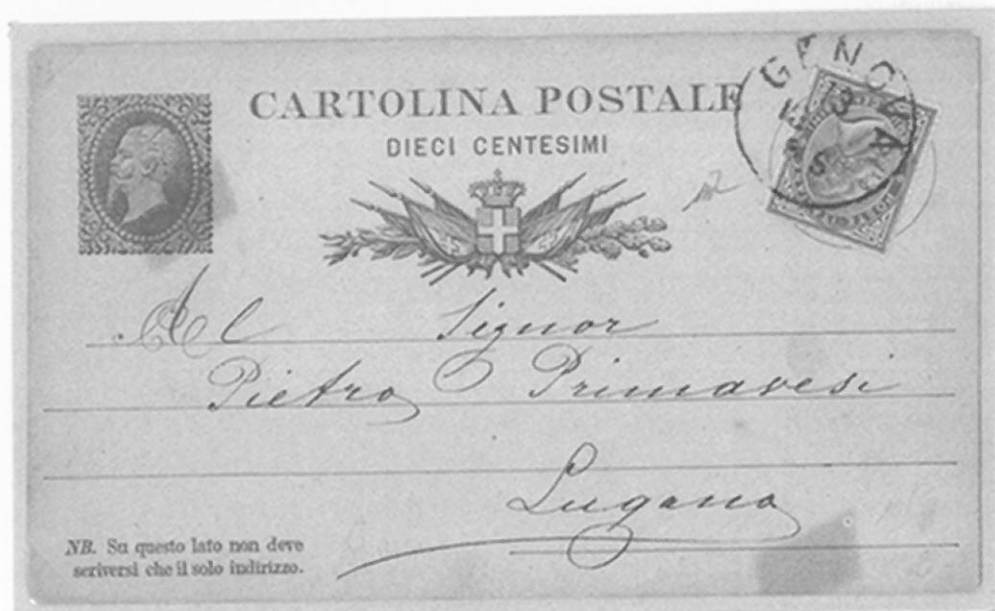 CARTOLINA POSTALE
DIECI CENTESIMI
GENOVA
Al Signor
Pietro Primavesi
Lugano
NB. Su questo lato non deve
scriversi che il solo indirizzo.